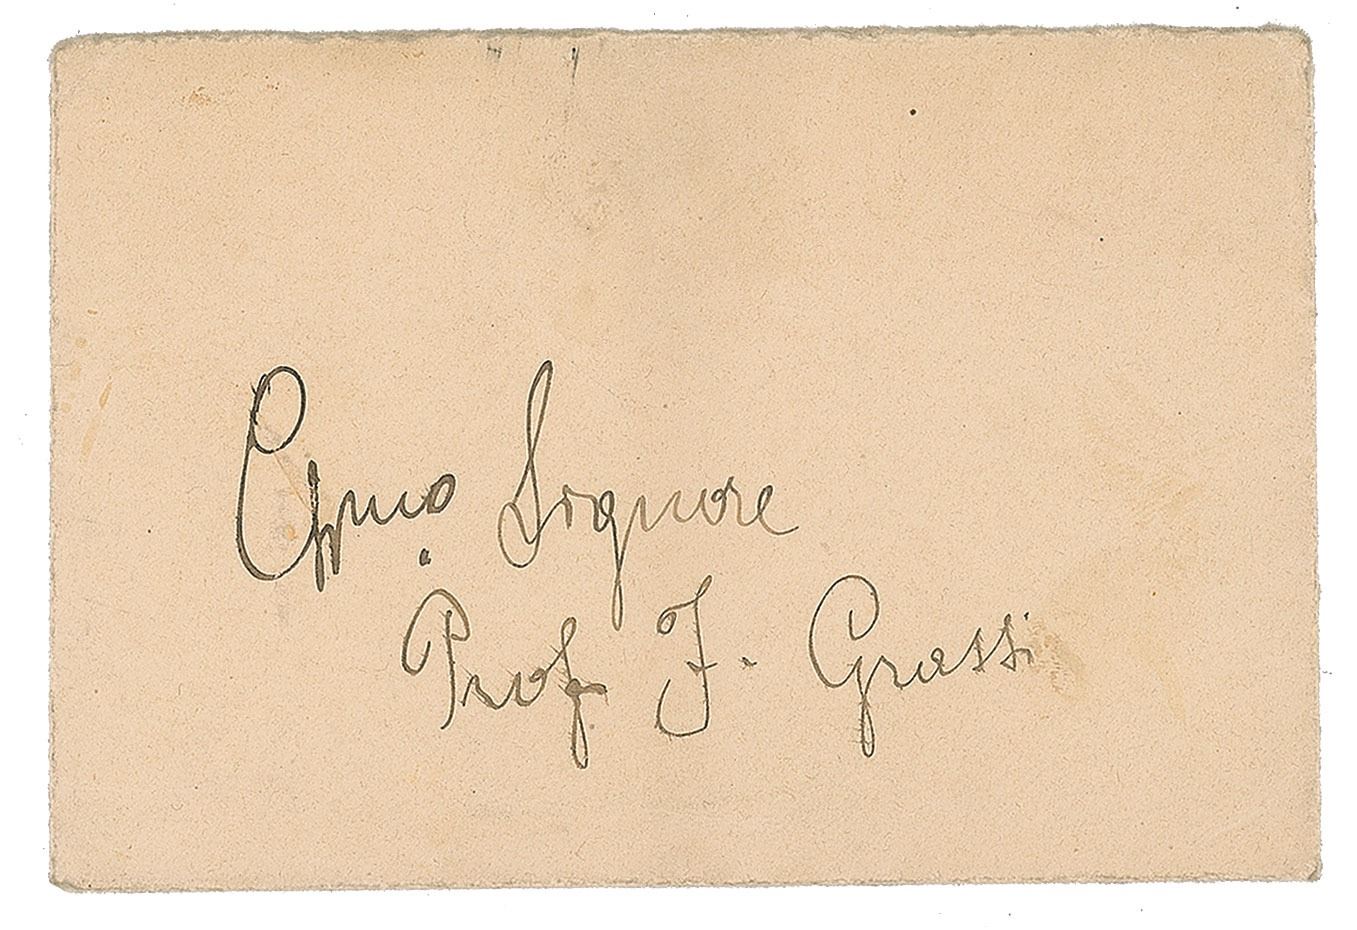 Egmo Signore
Prof. F. Grassi